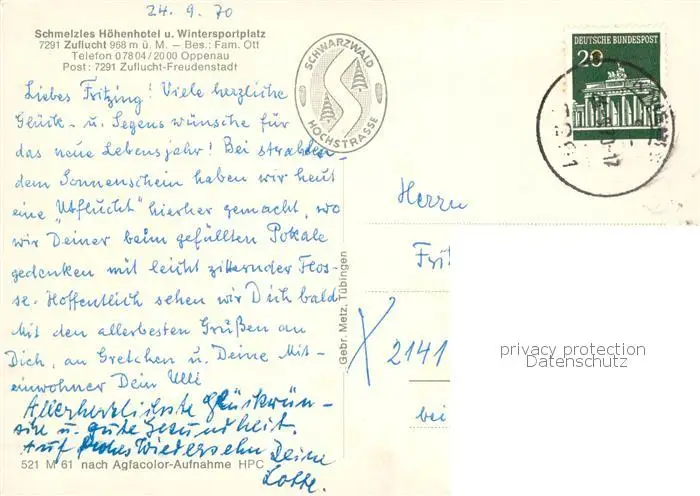 24.9.70
Schmelzles Höhenhotel u. Wintersportplatz
7291 Zuflucht 968 m ü. M. – Bes.: Fam. Ott
Telefon 07804/2000 Oppenau
Post: 7291 Zuflucht-Freudenstadt
SCHWARZWALD
HOCHSTRASSE
DEUTSCHE BUNDESPOST
20
Liebes Fritzing! Viele herzliche
Glück- u. Segenswünsche für
das neue Lebensjahr! Bei strahlen-
dem Sonnenschein haben wir heut
eine "Zuflucht" hierher gemacht, wo
wir Deiner beim gefüllten Pokale
gedenken mit leicht zitternder Flos-
se. Hoffentlich sehen wir Dich bald
Mit den allerbesten Grüßen an
Dich, an Gretchen u. Deine Mit-
einwohner Dein Ulli
Allerherzlichste Glückwün-
sche u. gute Gesundheit.
Auf frohes Wiedersehn Deine
Lotte.
521 M 61 nach Agfacolor-Aufnahme HPC
Gebr. Metz, Tübingen
Herrn
Frit
2141
bei
privacy protection
Datenschutz